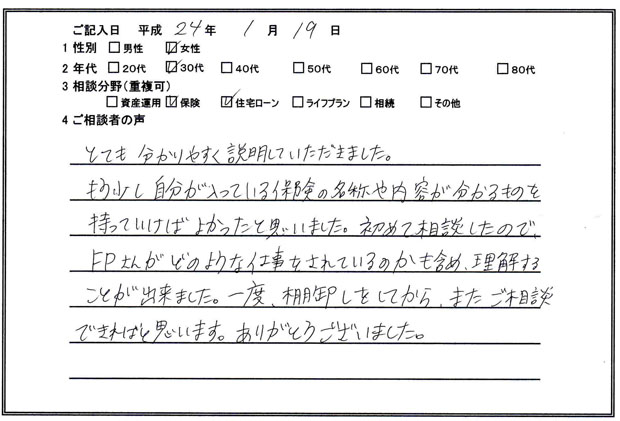 ご記入日 平成 24 年 1 月 19 日
1 性別 □男性 ☑女性
2 年代 □20代 ☑30代 □40代 □50代 □60代 □70代 □80代
3 相談分野(重複可)
□資産運用 ☑保険 ☑住宅ローン □ライフプラン □相続 □その他
4 ご相談者の声
とても 分かりやすく説明していただきました。
もう少し自分が入っている保険の名称や内容が分かるものを
持っていけばよかったと思いました。初めて相談したので、
FPさんがどのような仕事をされているのかも含め、理解する
ことが出来ました。一度、棚卸しをしてから、またご相談
できればと思います。ありがとうございました。